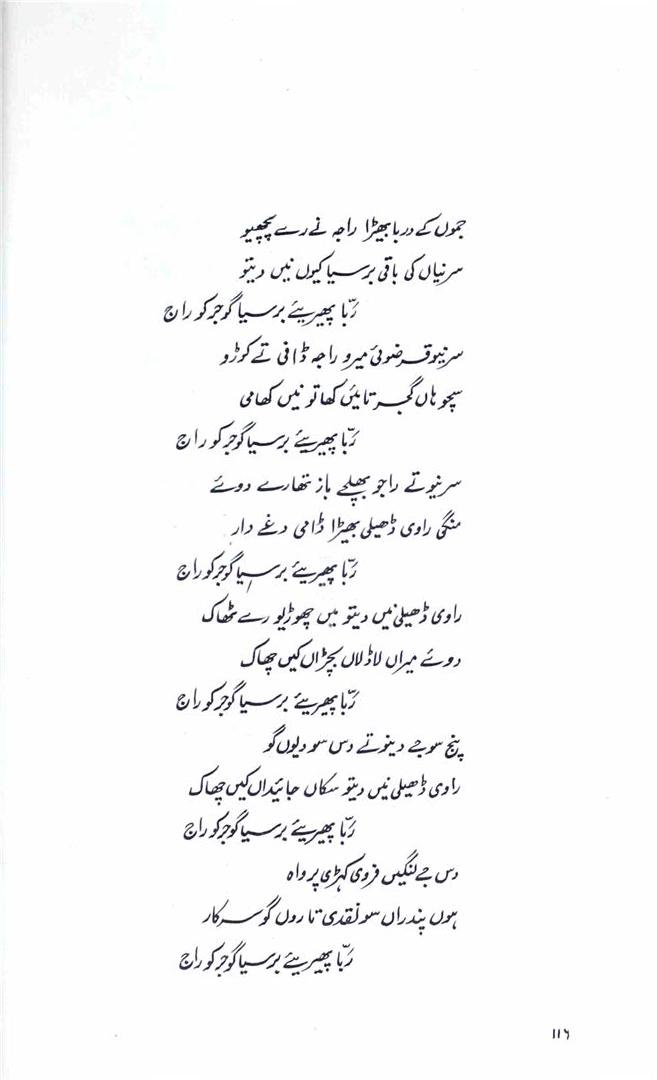 جموں کے دربا بھیڑا راجہ نے رے پچھیو
سرنیاں کی باقی برسیا کیوں نیں دیتو
ربّا پھیریئے برسیا گوجر کو راج
سرنیو قرضوئی میرو راجہ ڈافی تے کوڑو
سچو ہاں گجر تائیں کھاتو نیں کھامی
ربّا پھیریئے برسیا گوجر کو راج
سرنیو تے راجو بھلچے باز تھارے دوئے
منگی راوی ڈھیلی بھیڑا ڈامی دغے دار
ربّا پھیریئے برسیا گوجر کو راج
راوی ڈھیلی نیں دیتو میں چھوڑیو رے ٹھاک
دوئے میراں لاڈلاں بچڑاں کیں چھاک
ربّا پھیریئے برسیا گوجر کو راج
پنج سو جے دینو تے دس سو دیوں گو
راوی ڈھیلی نیں دیتو سکاں جائیداں کیں چھاک
ربّا پھیریئے برسیا گوجر کو راج
دس جے لنگیں فروی کہڑی پرواہ
ہوں پندراں سو نقدی تاروں گو سرکار
ربّا پھیریئے برسیا گوجر کو راج
۱۱۶